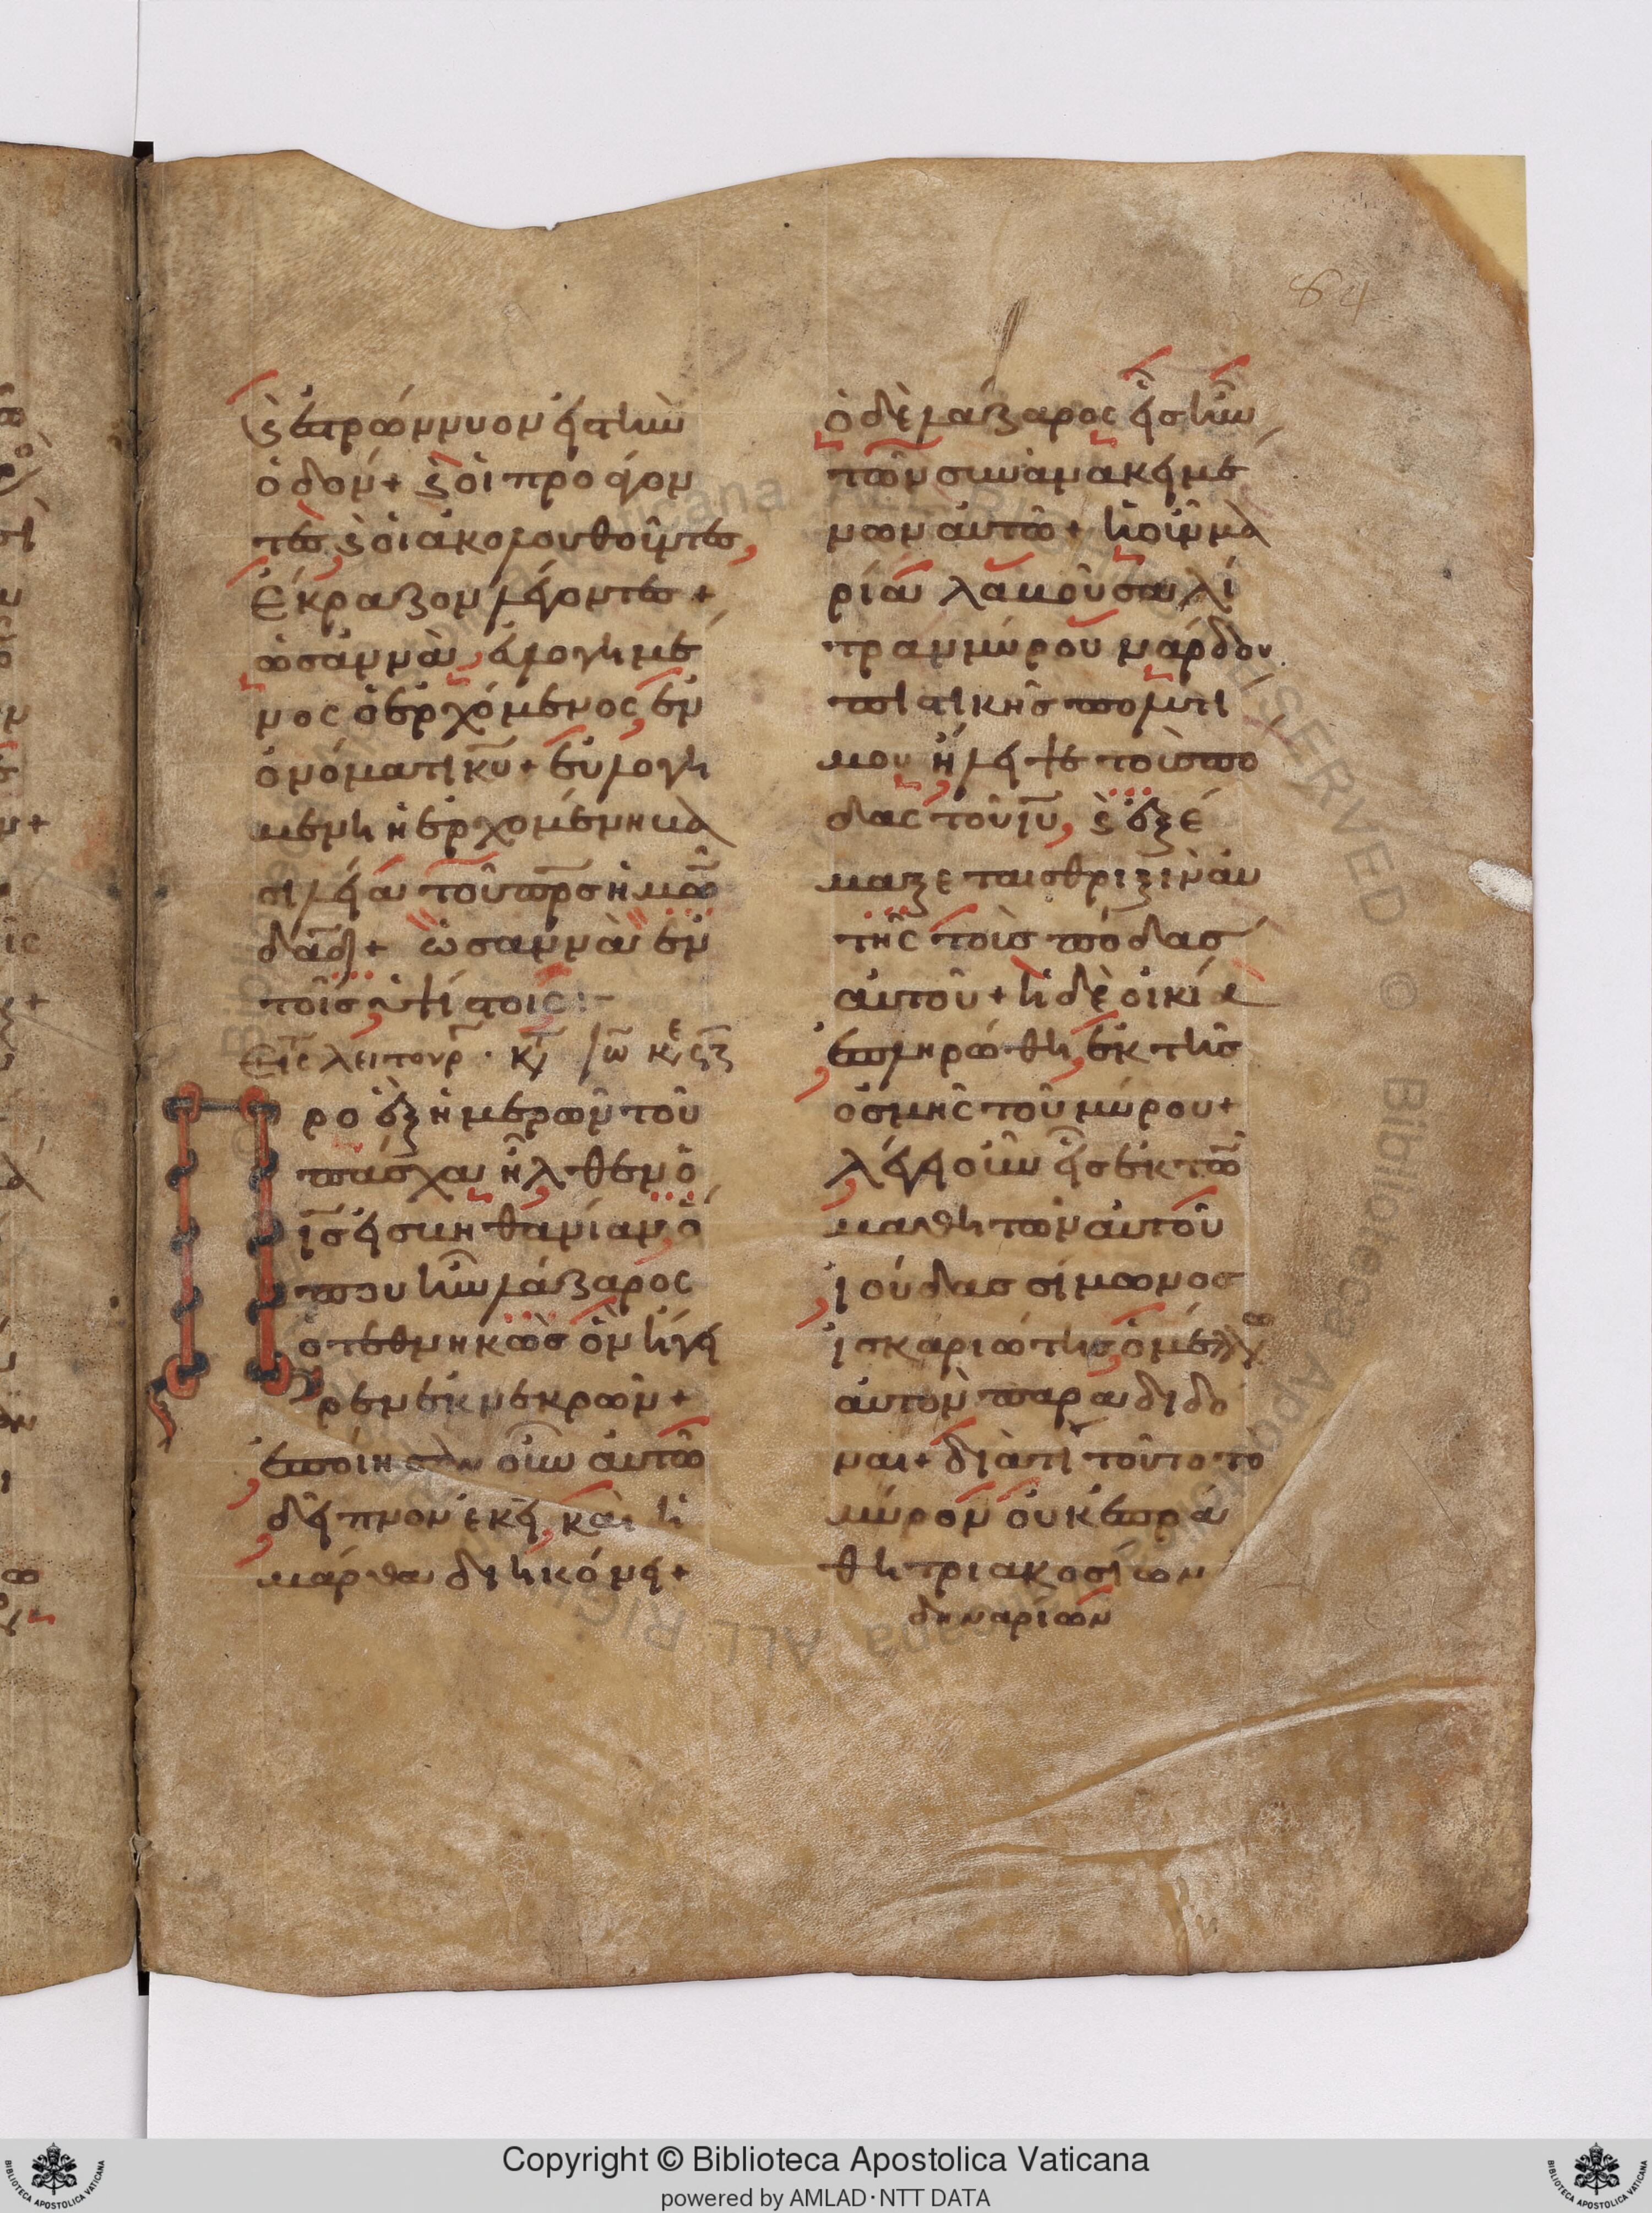 84
ϛ ἐστρώννυον εἰς τὴν
ὁδόν + ϛ οἱ προάγον
τες ϛ οἱ ἀκολουθοῦντες
ἔκραζον λέγοντες +
ὡσαννὰ, εὐλογημέ
νος ὁ ἐρχόμενος ἐν
ὀνόματι κυ + εὐλογη
μένη ἡ ἐρχομένη βα
σιλεία τοῦ πρς ἡμῶ
δαδ + ὡσαννὰ ἐν
τοῖς ὑψίστοις :-
Εἰς λειτουρ · κτ ιω κε ϛξ
ρο ἓξ ἡμερῶν τοῦ
πάσχα ἦλθεν ὁ
ις εἰς βηθανίαν, ὅ
που ἦν λάζαρος
ὁ τεθνηκὼς ὃν ἤγει
ρεν ἐκ νεκρῶν +
ἐποίησαν οὖν αὐτῶ
δεῖπνον ἐκεῖ, καὶ ἡ
μάρθα διηκόνει +
ὁ δὲ λάζαρος εἷς ἦν
τῶν συνανακειμέ
νων αὐτῶ + ἡ οὖν μα
ρία λαβοῦσα λί
τραν μύρου νάρδου
πιστικῆς πολυτί
μου ἤλειψε τοὺς πό
δας τοῦ ιυ, ϛ ἐξέ
μαξε ταις θριξὶν αὐ
τῆς τοὺς πόδας
αὐτοῦ + ἡ δὲ οἰκία
ἐπληρώθη ἐκ τῆς
ὀσμῆς τοῦ μύρου +
λέγει οὖν εἷς ἐκ τῶ
μαθητῶν αὐτοῦ
ἰούδας σίμωνος
ἰσκαριώτης ὁ μέλλων
αὐτὸν παραδιδό
ναι + διὰ τί τοῦτο το
μύρον οὐκ ἐπρά
θη τριακοσίων
δηναρίων
Copyright © Biblioteca Apostolica Vaticana
powered by AMLAD·NTT DATA